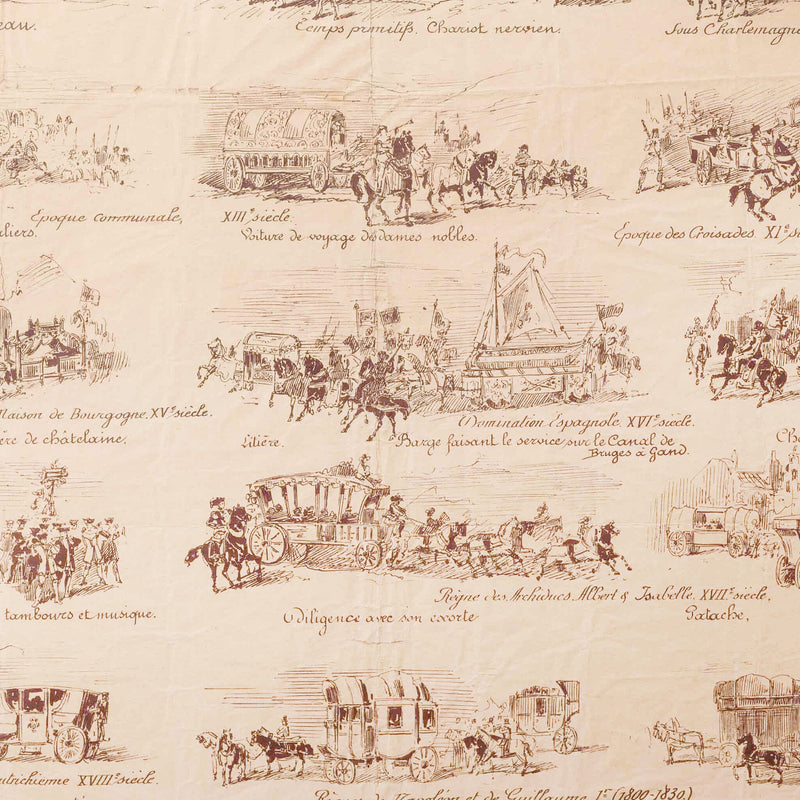 eau.
Temps primitifs. Chariot nervien.
Sous Charlemagne
Epoque communale, XIIIe siècle.
liers.
Voiture de voyage des dames nobles.
Epoque des Croisades XIe si
Maison de Bourgogne. XVe siècle.
ère de châtelaine.
Litière.
Domination Espagnole. XVIe siècle.
Barge faisant le service sur le Canal de
Bruges à Gand.
Ch
Règne des Archiducs Albert & Isabelle. XVIIe siècle.
tambours et musique.
Diligence avec son escorte
Patache,
utrichienne XVIIIe siècle.
Règne de Napoléon et de Guillaume Ier (1800-1830)